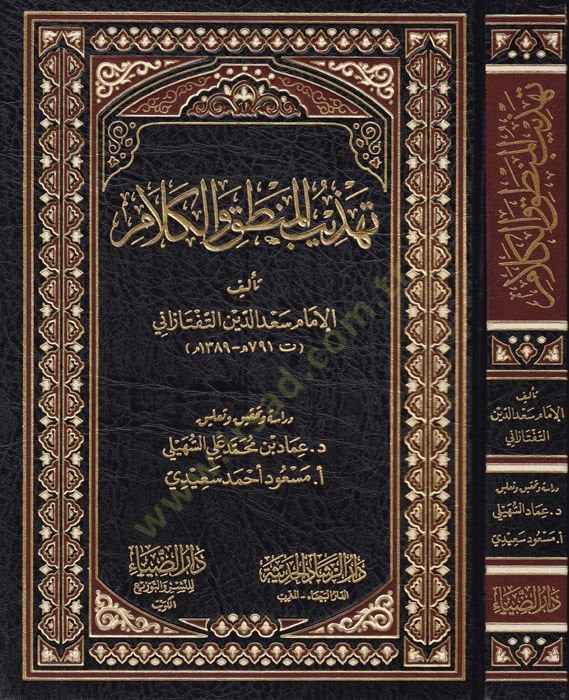 تهذيب المنطق والكلام
تأليف
الإمام سعد الدين التفتازاني
(ت ٧٩١هـ - ١٣٨٩م)
دراسة وتحقيق وتعليق
د. عماد بن محمد علي السهيلي
أ. مسعود أحمد سعيدي
دار الرشاد الحديثة
الدار البيضاء - المغرب
دار الضياء
للنشر والتوزيع
الكويت
تهذيب المنطق والكلام
تأليف
الإمام سعد الدين
التفتازاني
دراسة وتحقيق وتعليق
د. عماد السهيلي
أ. مسعود سعيدي
دار الضياء